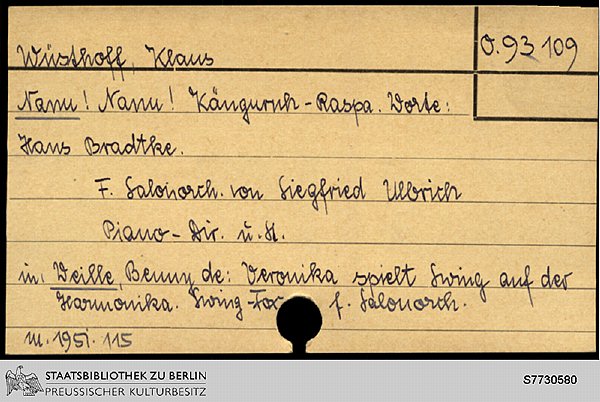 Wüsthoff, Klaus
O. 93 109
Nanu! Nanu! Känguruh-Raspa. Worte:
Hans Bradtke.
F. Salonorch. von Siegfried Ulbrich
Piano-Dir. u. St.
in: Weille, Benny de: Veronika spielt Swing auf der
Harmonika. Swing-Fox f. Salonorch.
M. 1951. 115
STAATSBIBLIOTHEK ZU BERLIN
PREUSSISCHER KULTURBESITZ
S7730580